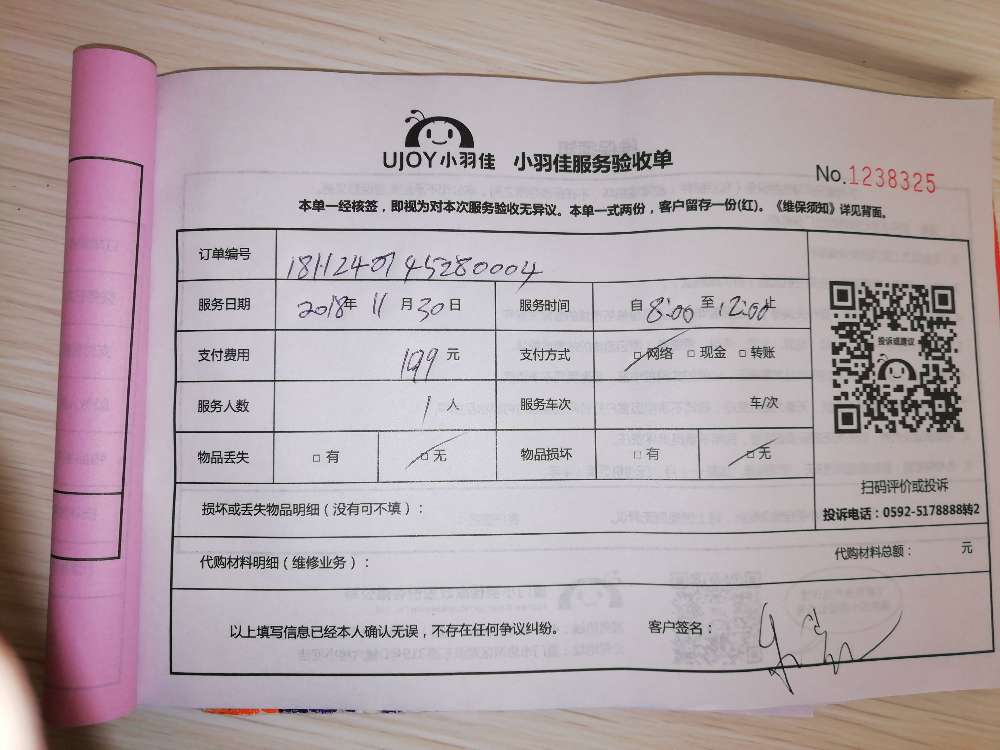 UJOY小羽佳 小羽佳服务验收单
No.1238325
本单一经核签，即视为对本次服务验收无异议。本单一式两份，客户留存一份(红)。《维保须知》详见背面。
订单编号 1811240745280004
服务日期 2018年 11月30日 服务时间 自8:00至12:00止
支付费用 199元 支付方式 □网络 □现金 □转账
服务人数 1人 服务车次 车/次
物品丢失 □有 □无 物品损坏 □有 □无
投诉或建议
扫码评价或投诉
投诉电话：0592-5178888转2
损坏或丢失物品明细（没有可不填）：
代购材料明细（维修业务）： 代购材料总额： 元
以上填写信息已经本人确认无误，不存在任何争议纠纷。 客户签名：